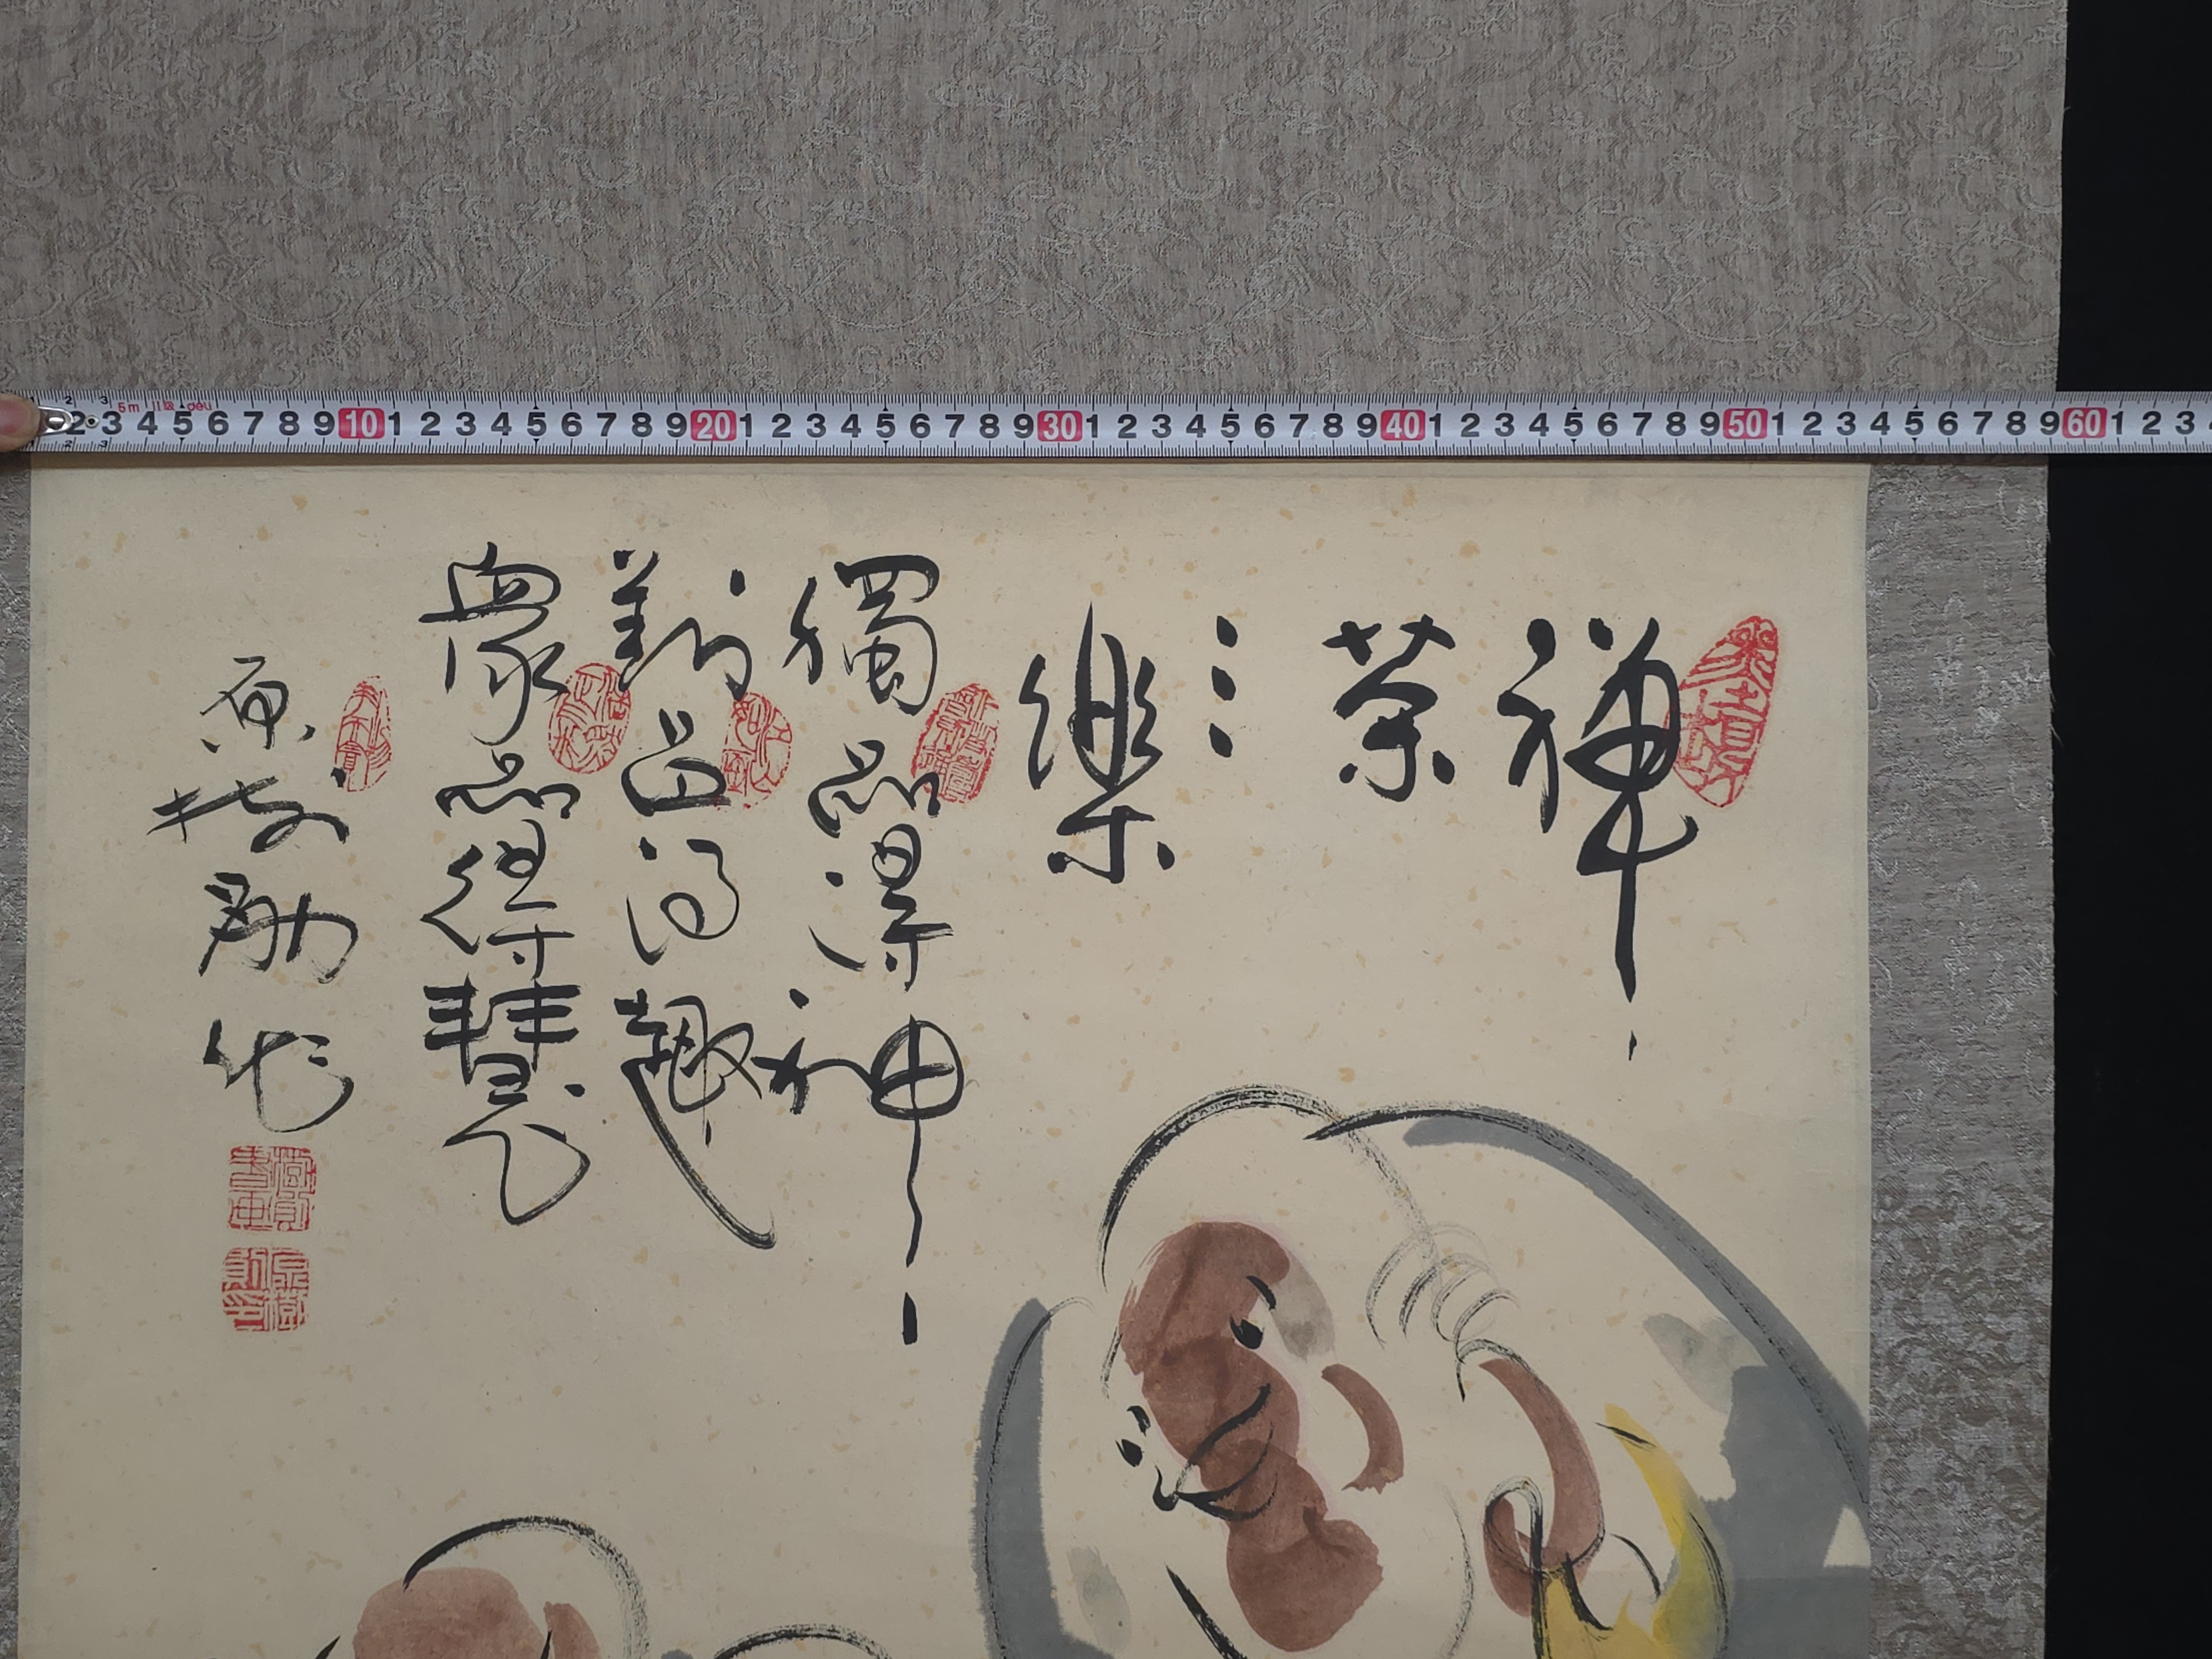 2 3 4 5 6 7 8 9 10 1 2 3 4 5 6 7 8 9 20 1 2 3 4 5 6 7 8 9 30 1 2 3 4 5 6 7 8 9 40 1 2 3 4 5 6 7 8 9 50 1 2 3 4 5 6 7 8 9 60 1 2 3
禅茶三樂
獨品得神
對品得趣
眾品得慧
原樹勛作